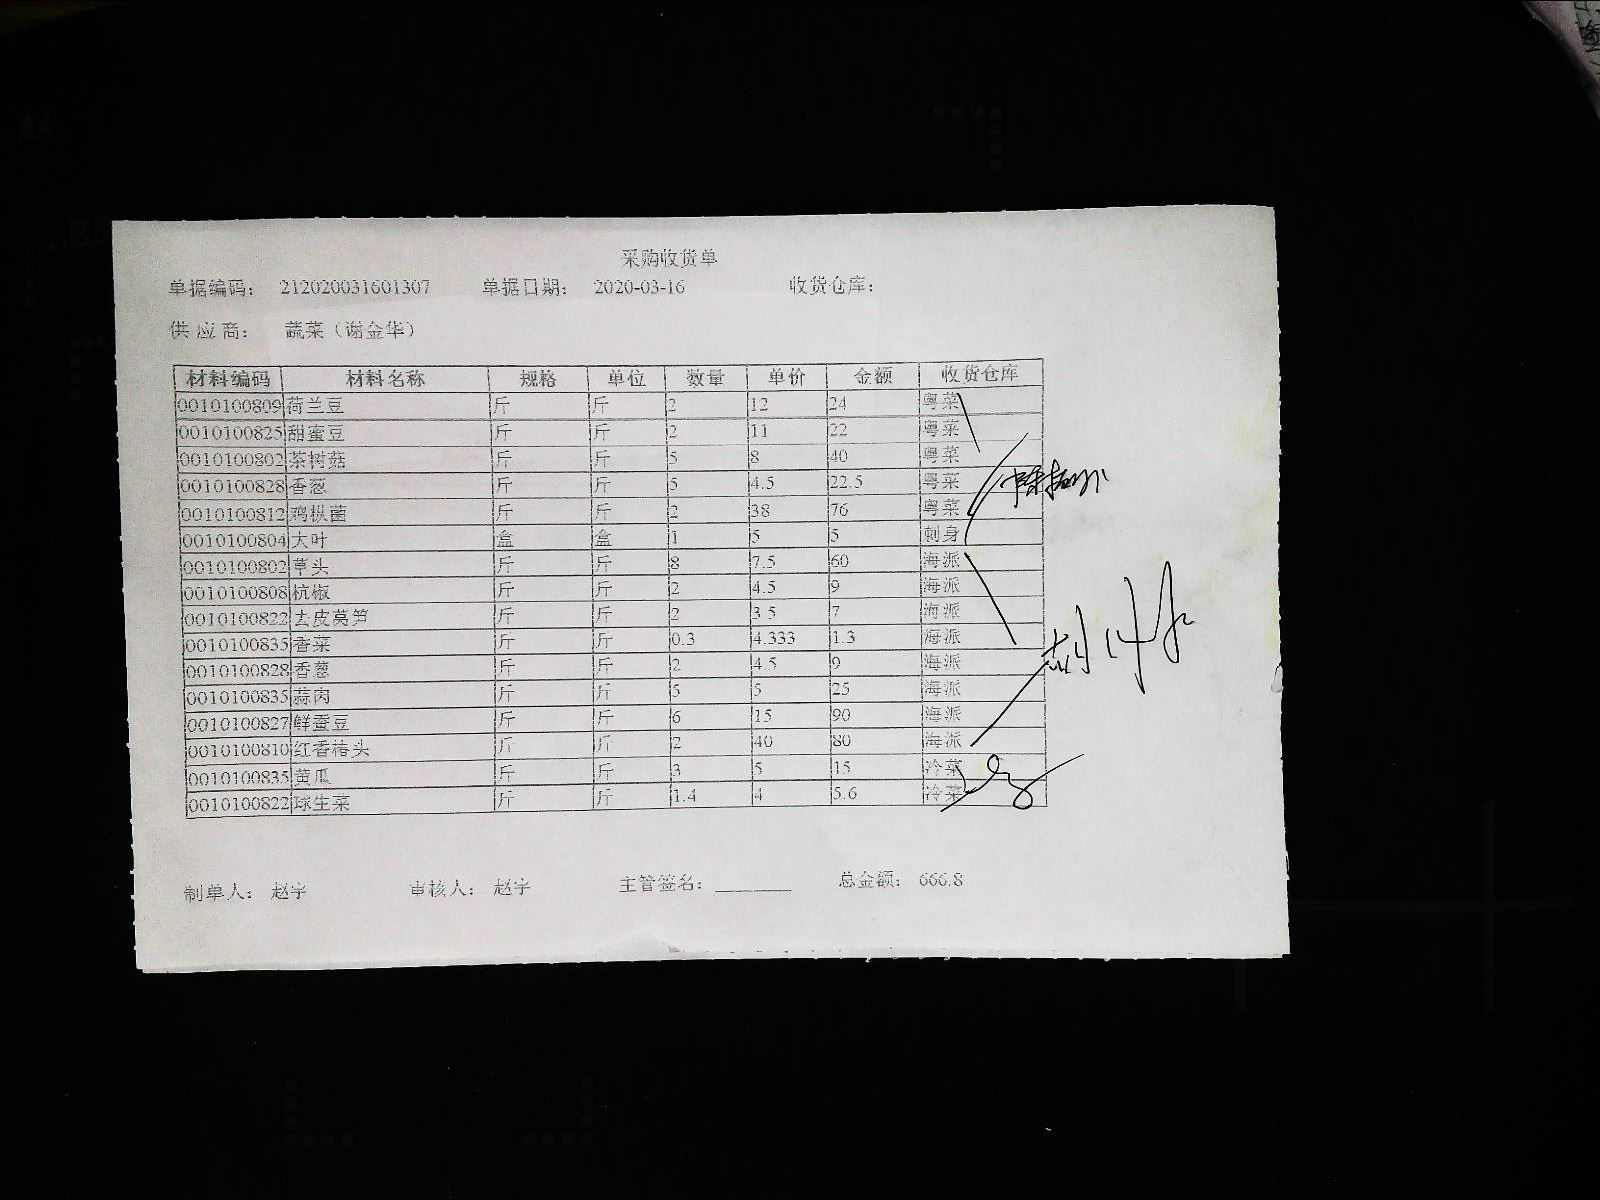 采购收货单
单据编码： 212020031601307 单据日期： 2020-03-16 收货仓库：
供应商： 蔬菜（谢金华）
材料编码 材料名称 规格 单位 数量 单价 金额 收货仓库
0010100809 荷兰豆 斤 斤 2 12 24 粤菜
0010100825 甜蜜豆 斤 斤 2 11 22 粤菜
0010100802 茶树菇 斤 斤 5 8 40 粤菜
0010100828 香葱 斤 斤 5 4.5 22.5 粤菜
0010100812 鸡枞菌 斤 斤 2 38 76 粤菜
0010100804 大叶 盒 盒 1 5 5 刺身
0010100802 草头 斤 斤 8 7.5 60 海派
0010100808 杭椒 斤 斤 2 4.5 9 海派
0010100822 去皮莴笋 斤 斤 2 3.5 7 海派
0010100835 香菜 斤 斤 0.3 4.333 1.3 海派
0010100828 香葱 斤 斤 2 4.5 9 海派
0010100835 蒜肉 斤 斤 5 5 25 海派
0010100827 鲜蚕豆 斤 斤 6 15 90 海派
0010100810 红香椿头 斤 斤 2 40 80 海派
0010100835 黄瓜 斤 斤 3 5 15 冷菜
0010100822 球生菜 斤 斤 1.4 4 5.6 冷菜
制单人： 赵宇 审核人： 赵宇 主管签名： 总金额： 666.8